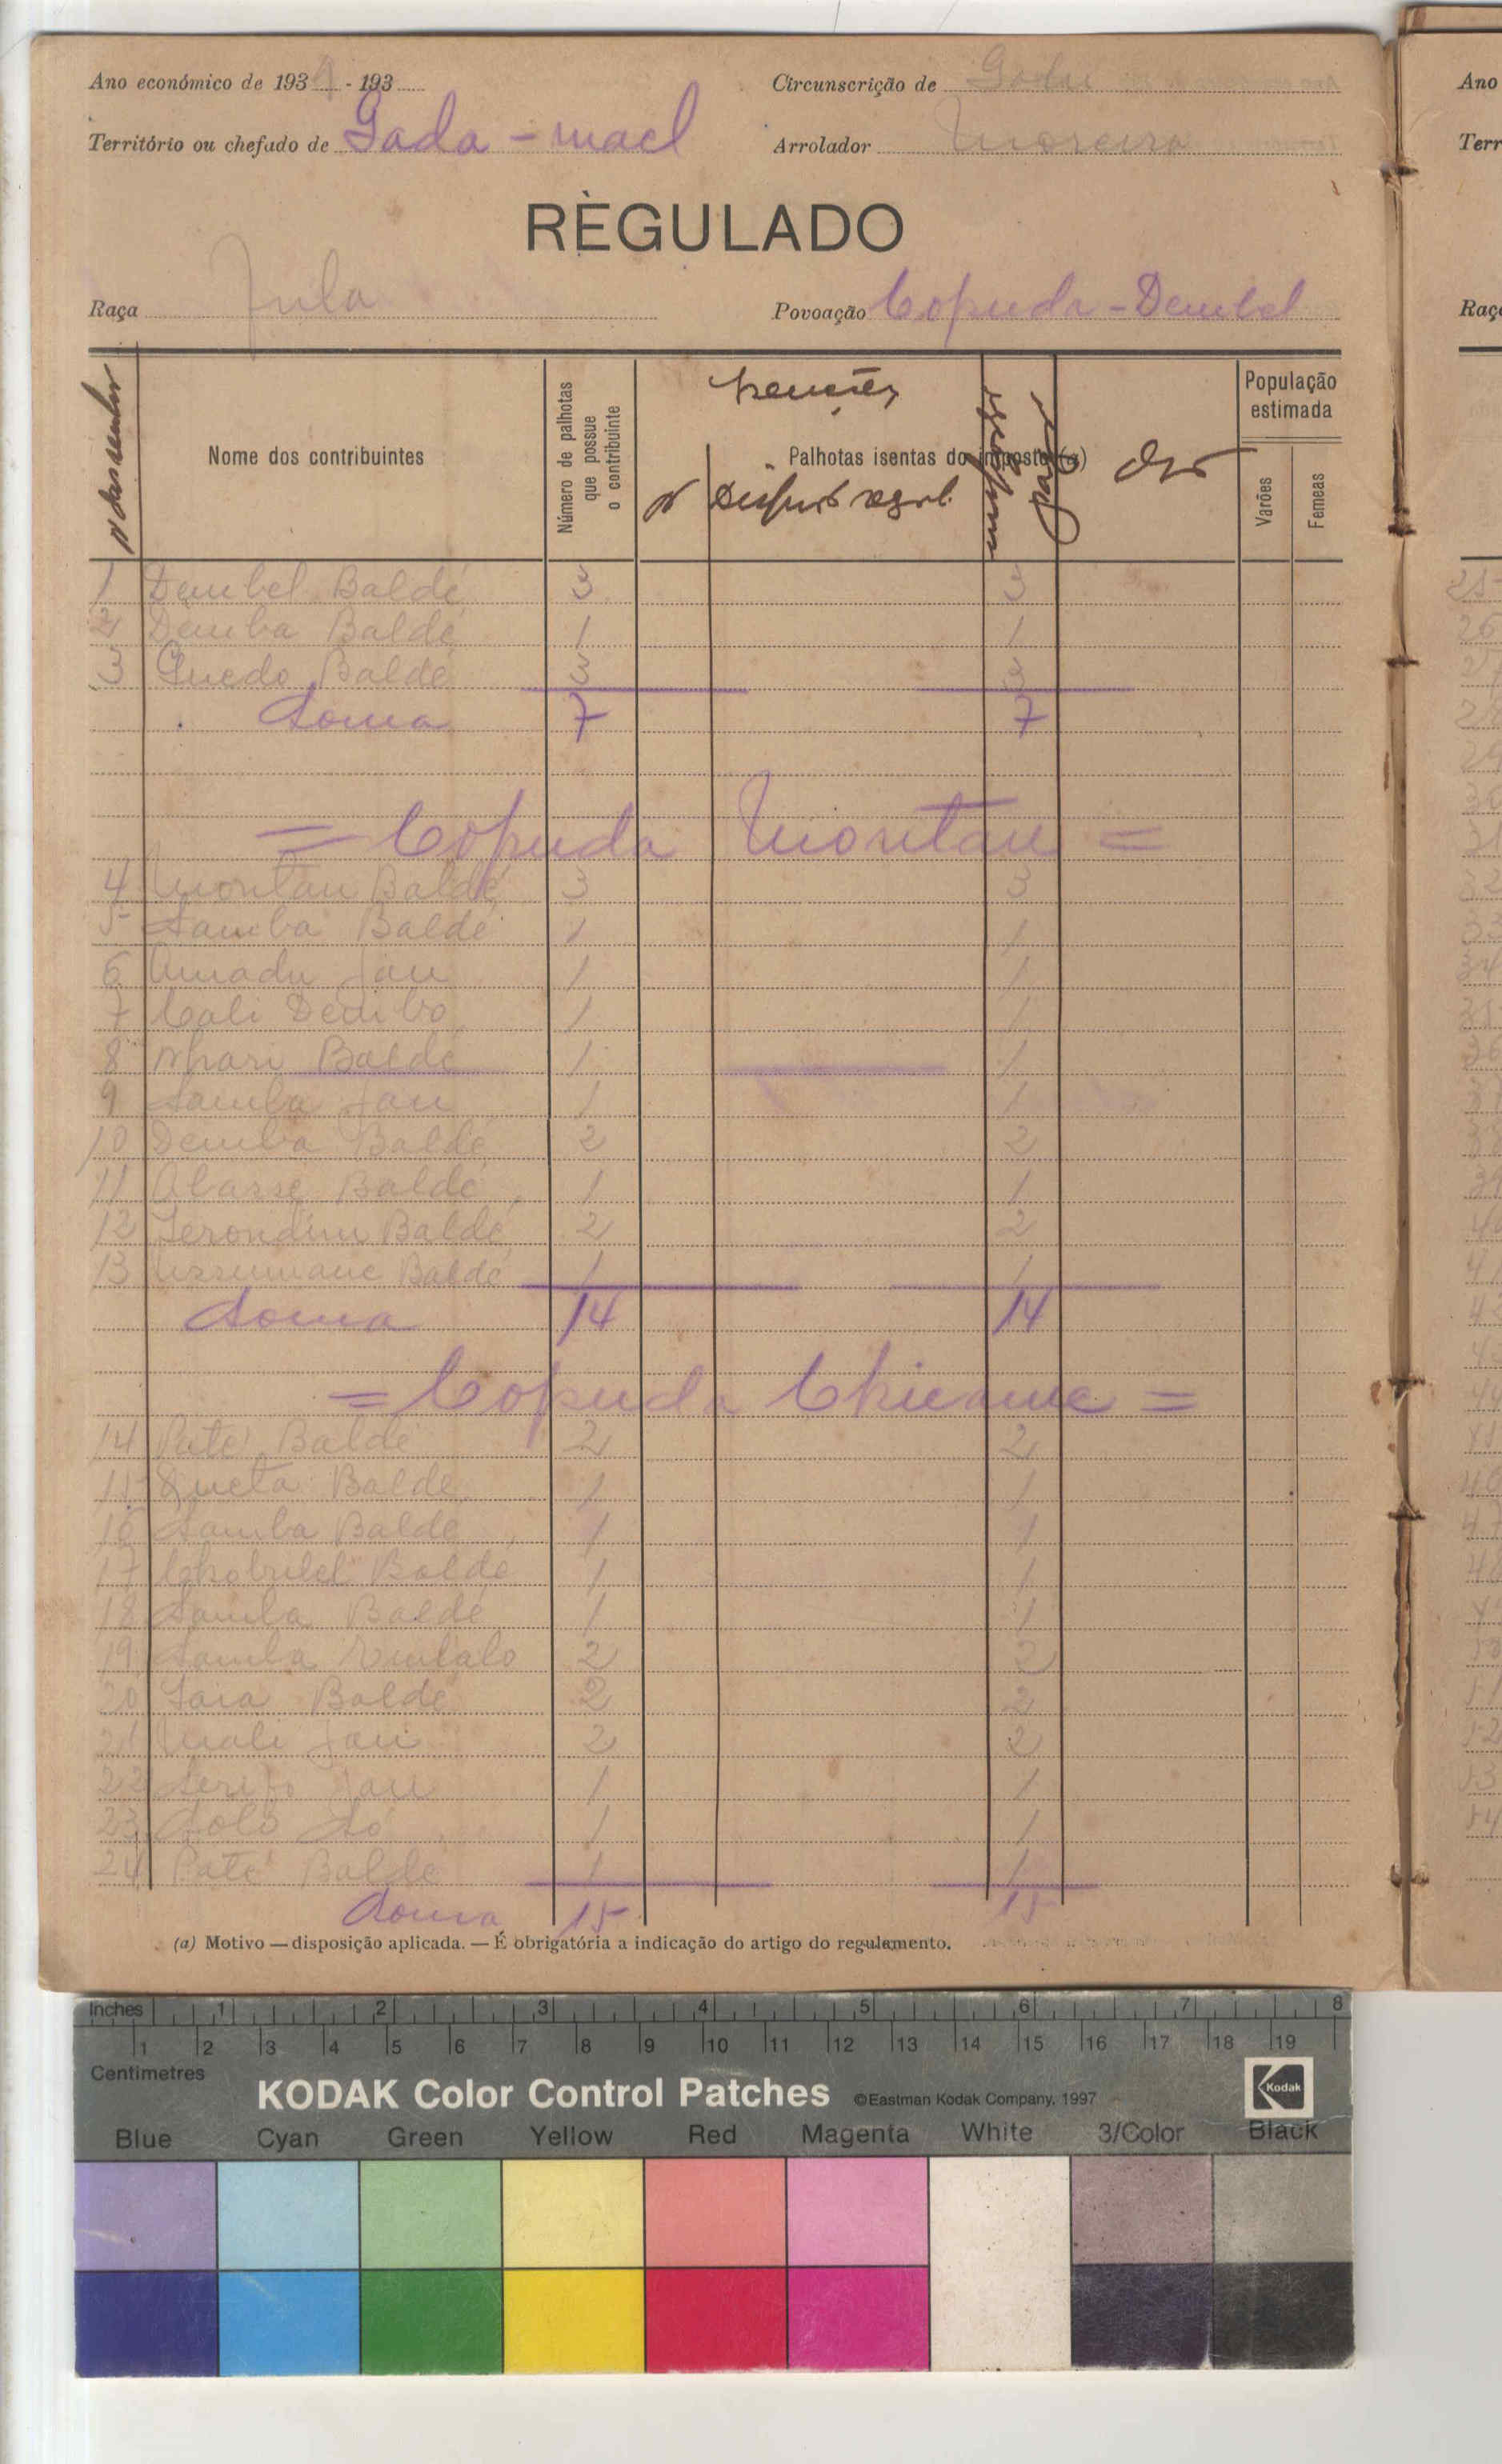 Ano económico de 193 - 193
Circunscrição de
Território ou chefado de Gada - mael
Arrolador Moreira
RÈGULADO
Raça Fula
Povoação Copuda - Dembel
Nome dos contribuintes
Número de palhotas que possue o contribuinte
Isenções
Palhotas isentas do imposto (a)
População estimada
Varões
Femeas
1 Dembel Baldé 3 3
2 Demba Baldé 1 1
3 Guedo Baldé 3 3
Soma 7 7
= Copuda Montau =
4 Montau Baldé 3 3
5 Samba Baldé 1 1
6 Amadu Jau 1 1
7 Cali Dembo 1 1
8 Nhari Baldé 1 1
9 Samba Jau 1 1
10 Demba Baldé 2 2
11 Alassé Baldé 1 1
12 Serondim Baldé 2 2
13 Ussumane Baldé 1 1
Soma 14 14
= Copuda Chicame =
14 Paté Baldé 2 2
15 Queta Baldé 1 1
16 Samba Baldé 1 1
17 Baldé 1 1
18 Samba Baldé 1 1
19 Samba Embalo 2 2
20 Saia Baldé 2 2
21 Mali Jau 2 2
22 Serifo Jau 1 1
23 Solo Só 1 1
24 Paté Baldé 1 1
Soma 15 15
(a) Motivo — disposição aplicada. — É obrigatória a indicação do artigo do regulamento.
Ano
Terr
Raç
Inches 1 2 3 4 5 6 7 8
1 2 3 4 5 6 7 8 9 10 11 12 13 14 15 16 17 18 19
Centimetres
KODAK Color Control Patches ©Eastman Kodak Company, 1997 Kodak
Blue Cyan Green Yellow Red Magenta White 3/Color Black